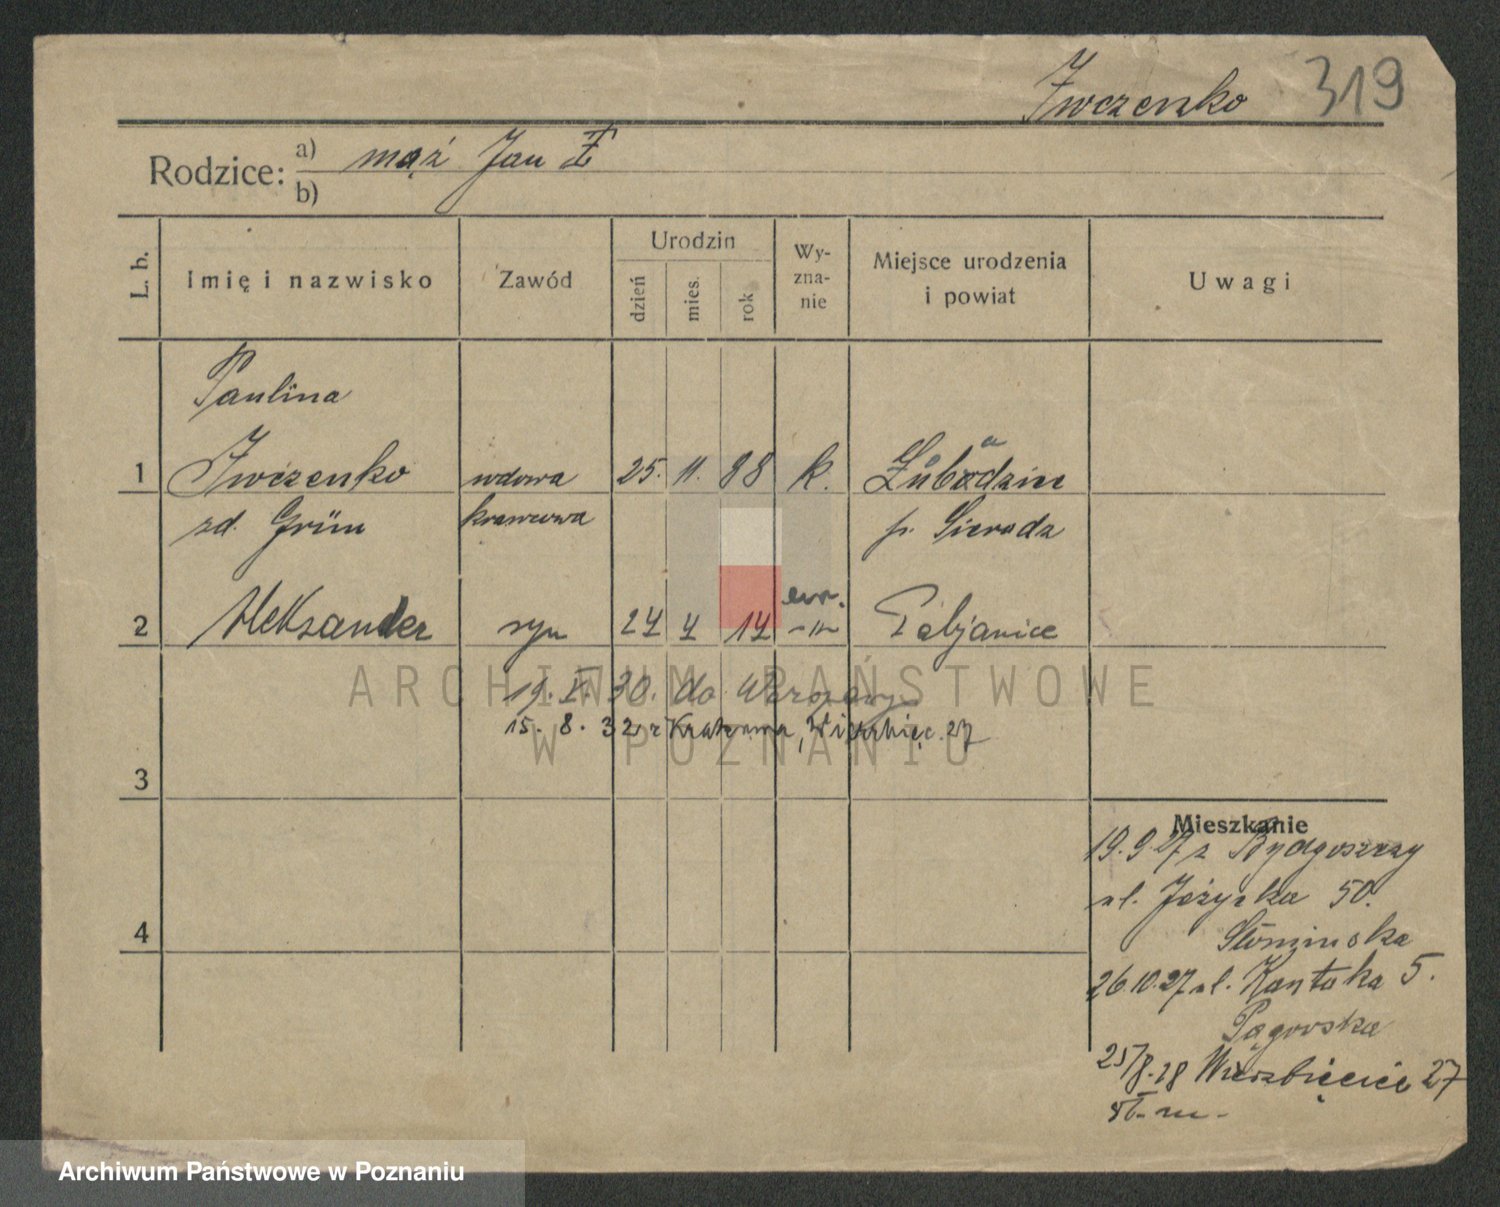 Iwczenko 319
Rodzice: a) mąż Jan Ż
b)
L. b. Imię i nazwisko Zawód Urodzin dzień mies. rok Wy-zna-nie Miejsce urodzenia i powiat Uwagi
Paulina
1 Iwczenko wdowa 25. 11. 88 k. a
zd. Grün krawcowa p. Sieradz
2 Aleksander syn 24 4 14 ew. -"- Pabjanice
19. X. 30. do Warszawy
15. 8. 32 z 27
3
4
Mieszkanie
19.9.27 z Bydgoszczy
ul. Jeżycka 50.
Słomińska
26.10.27 ul. Kantaka 5.
Pągowska
25/8.28 Wierzbięcice 27
ARCHIWUM PAŃSTWOWE
W POZNANIU
Archiwum Państwowe w Poznaniu